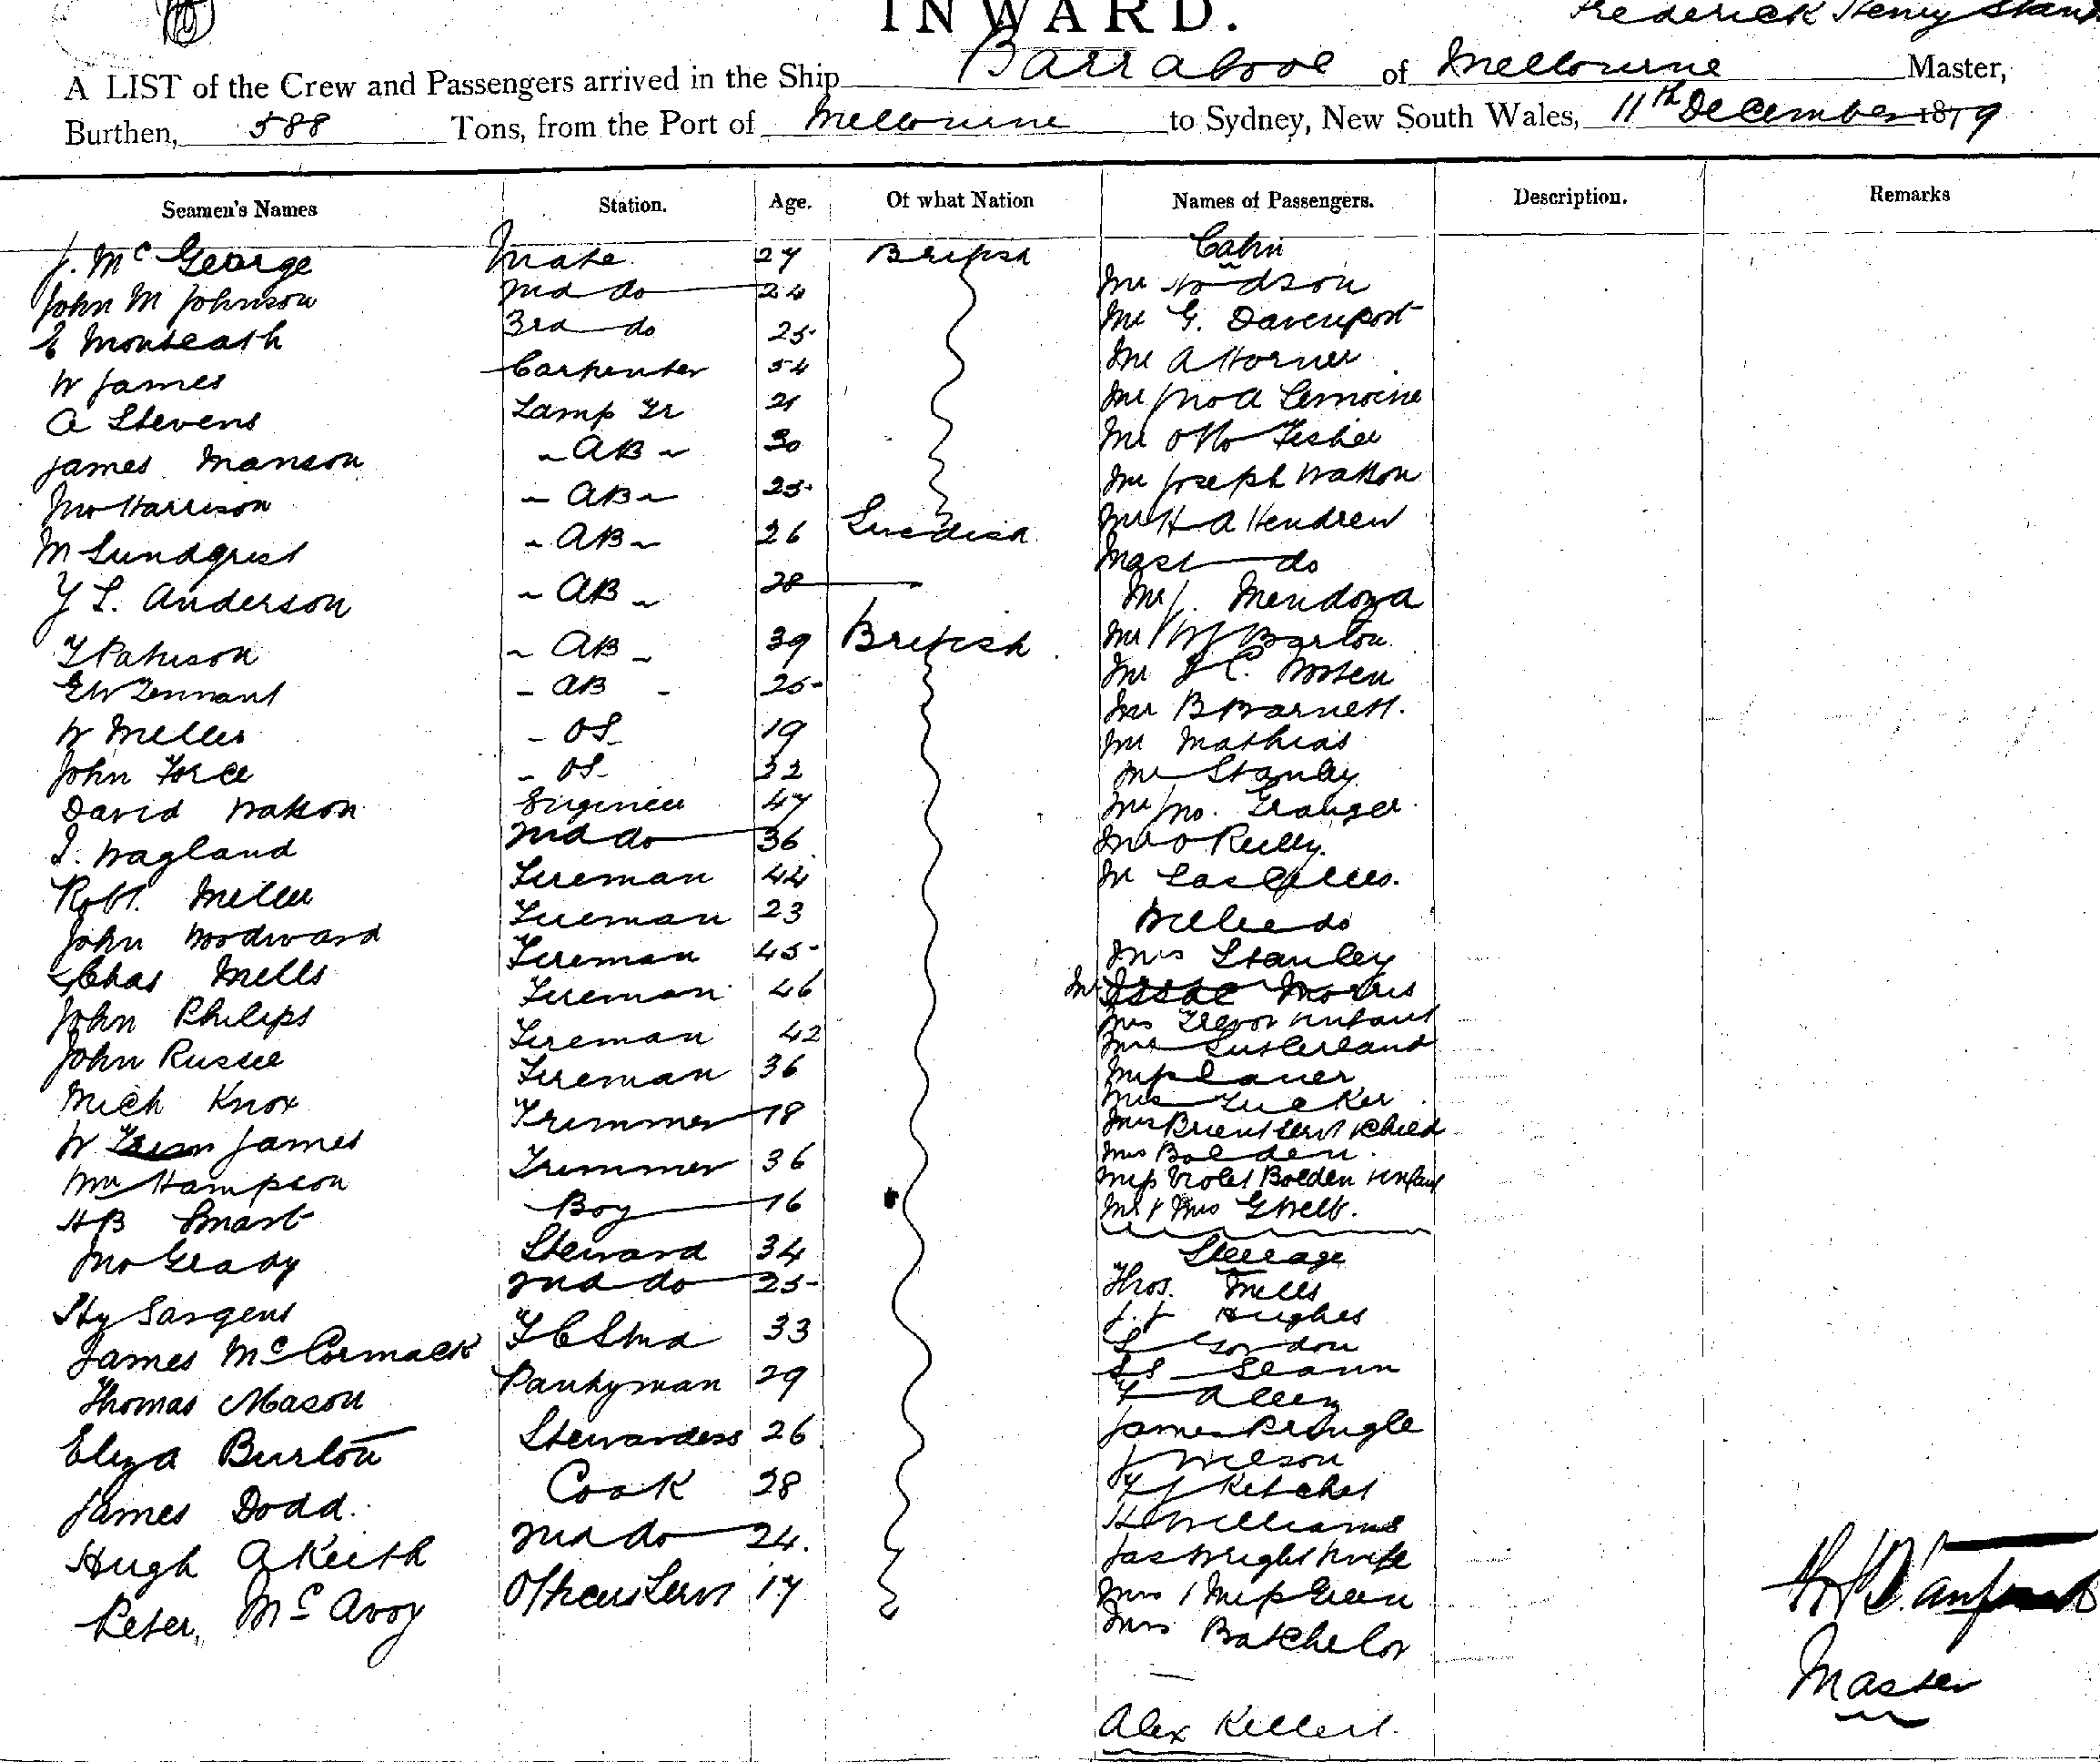 INWARD.
Frederick Henry
A LIST of the Crew and Passengers arrived in the Ship Barrabool of Melbourne Master,
Burthen, 588 Tons, from the Port of Melbourne to Sydney, New South Wales, 11th December 1879
Seamen's Names Station. Age. Of what Nation Names of Passengers. Description. Remarks
J. McGeorge Mate 27 British Cabin
John M Johnson 2nd do 24 Mr Hodson
E Monteath 3rd do 25 Mr G. Davenport
W James Carpenter 54 Mr A Horner
A Stevens Lamp Tr 21 Mr Jno A Lemoine
James Manson AB 30 Mr Otto Fisher
Jno Harrison AB 25 Mr Joseph Watson
M Lundqrist AB 26 Swedish Mr H A Hendrew
Y L. Anderson AB 28 Mast do
Mr J. Mendoza
T Patterson AB 39 British Mr W J Barton
E W Tennant AB 25 Mr J C. Wooten
W Miller OS 19 Mr B Barnett.
John Force OS 22 Mr Mathias
David Watson Engineer 47 Mr Stanley
I. Wagland 2nd do 36 Mr Jno. Granger
Robt. Miller Fireman 44 Mr O Reilly.
John Woodward Fireman 23 Mr
Chas Mills Fireman 45 do
John Philips Fireman 46 Mrs Stanley
John Russell Fireman 42 Mr Isaac Morris
Mich Knox Fireman 36 Mrs Trevor & infant
W James Trimmer 18 Mrs Sutherland
Wm Hampson Trimmer 36 Miss
HB Smart Boy 16 Mrs Tucker
Jno Grady Steward 34 Mrs Brient servt & child
Hy Sargent 2nd do 25 Mrs Bolden
James McCormack F C Stwd 33 Miss Violet Bolden & infant
Thomas Mason Pantryman 29 Mr & Mrs G Webb.
Eliza Burton Stewardess 26 Steerage
James Dodd. Cook 28 Thos. Mills
Hugh A Keith 2nd do 24. J. J Hughes
Peter, McAvoy Officers Servt 17 L Gordon
SS Slann
F Allen
James Pringle
J Wilson
F J Kitchel
H Williams
Jas Wright & wife
Mrs & Miss Green
Mrs Batchelor
Alex Kellert.
Master